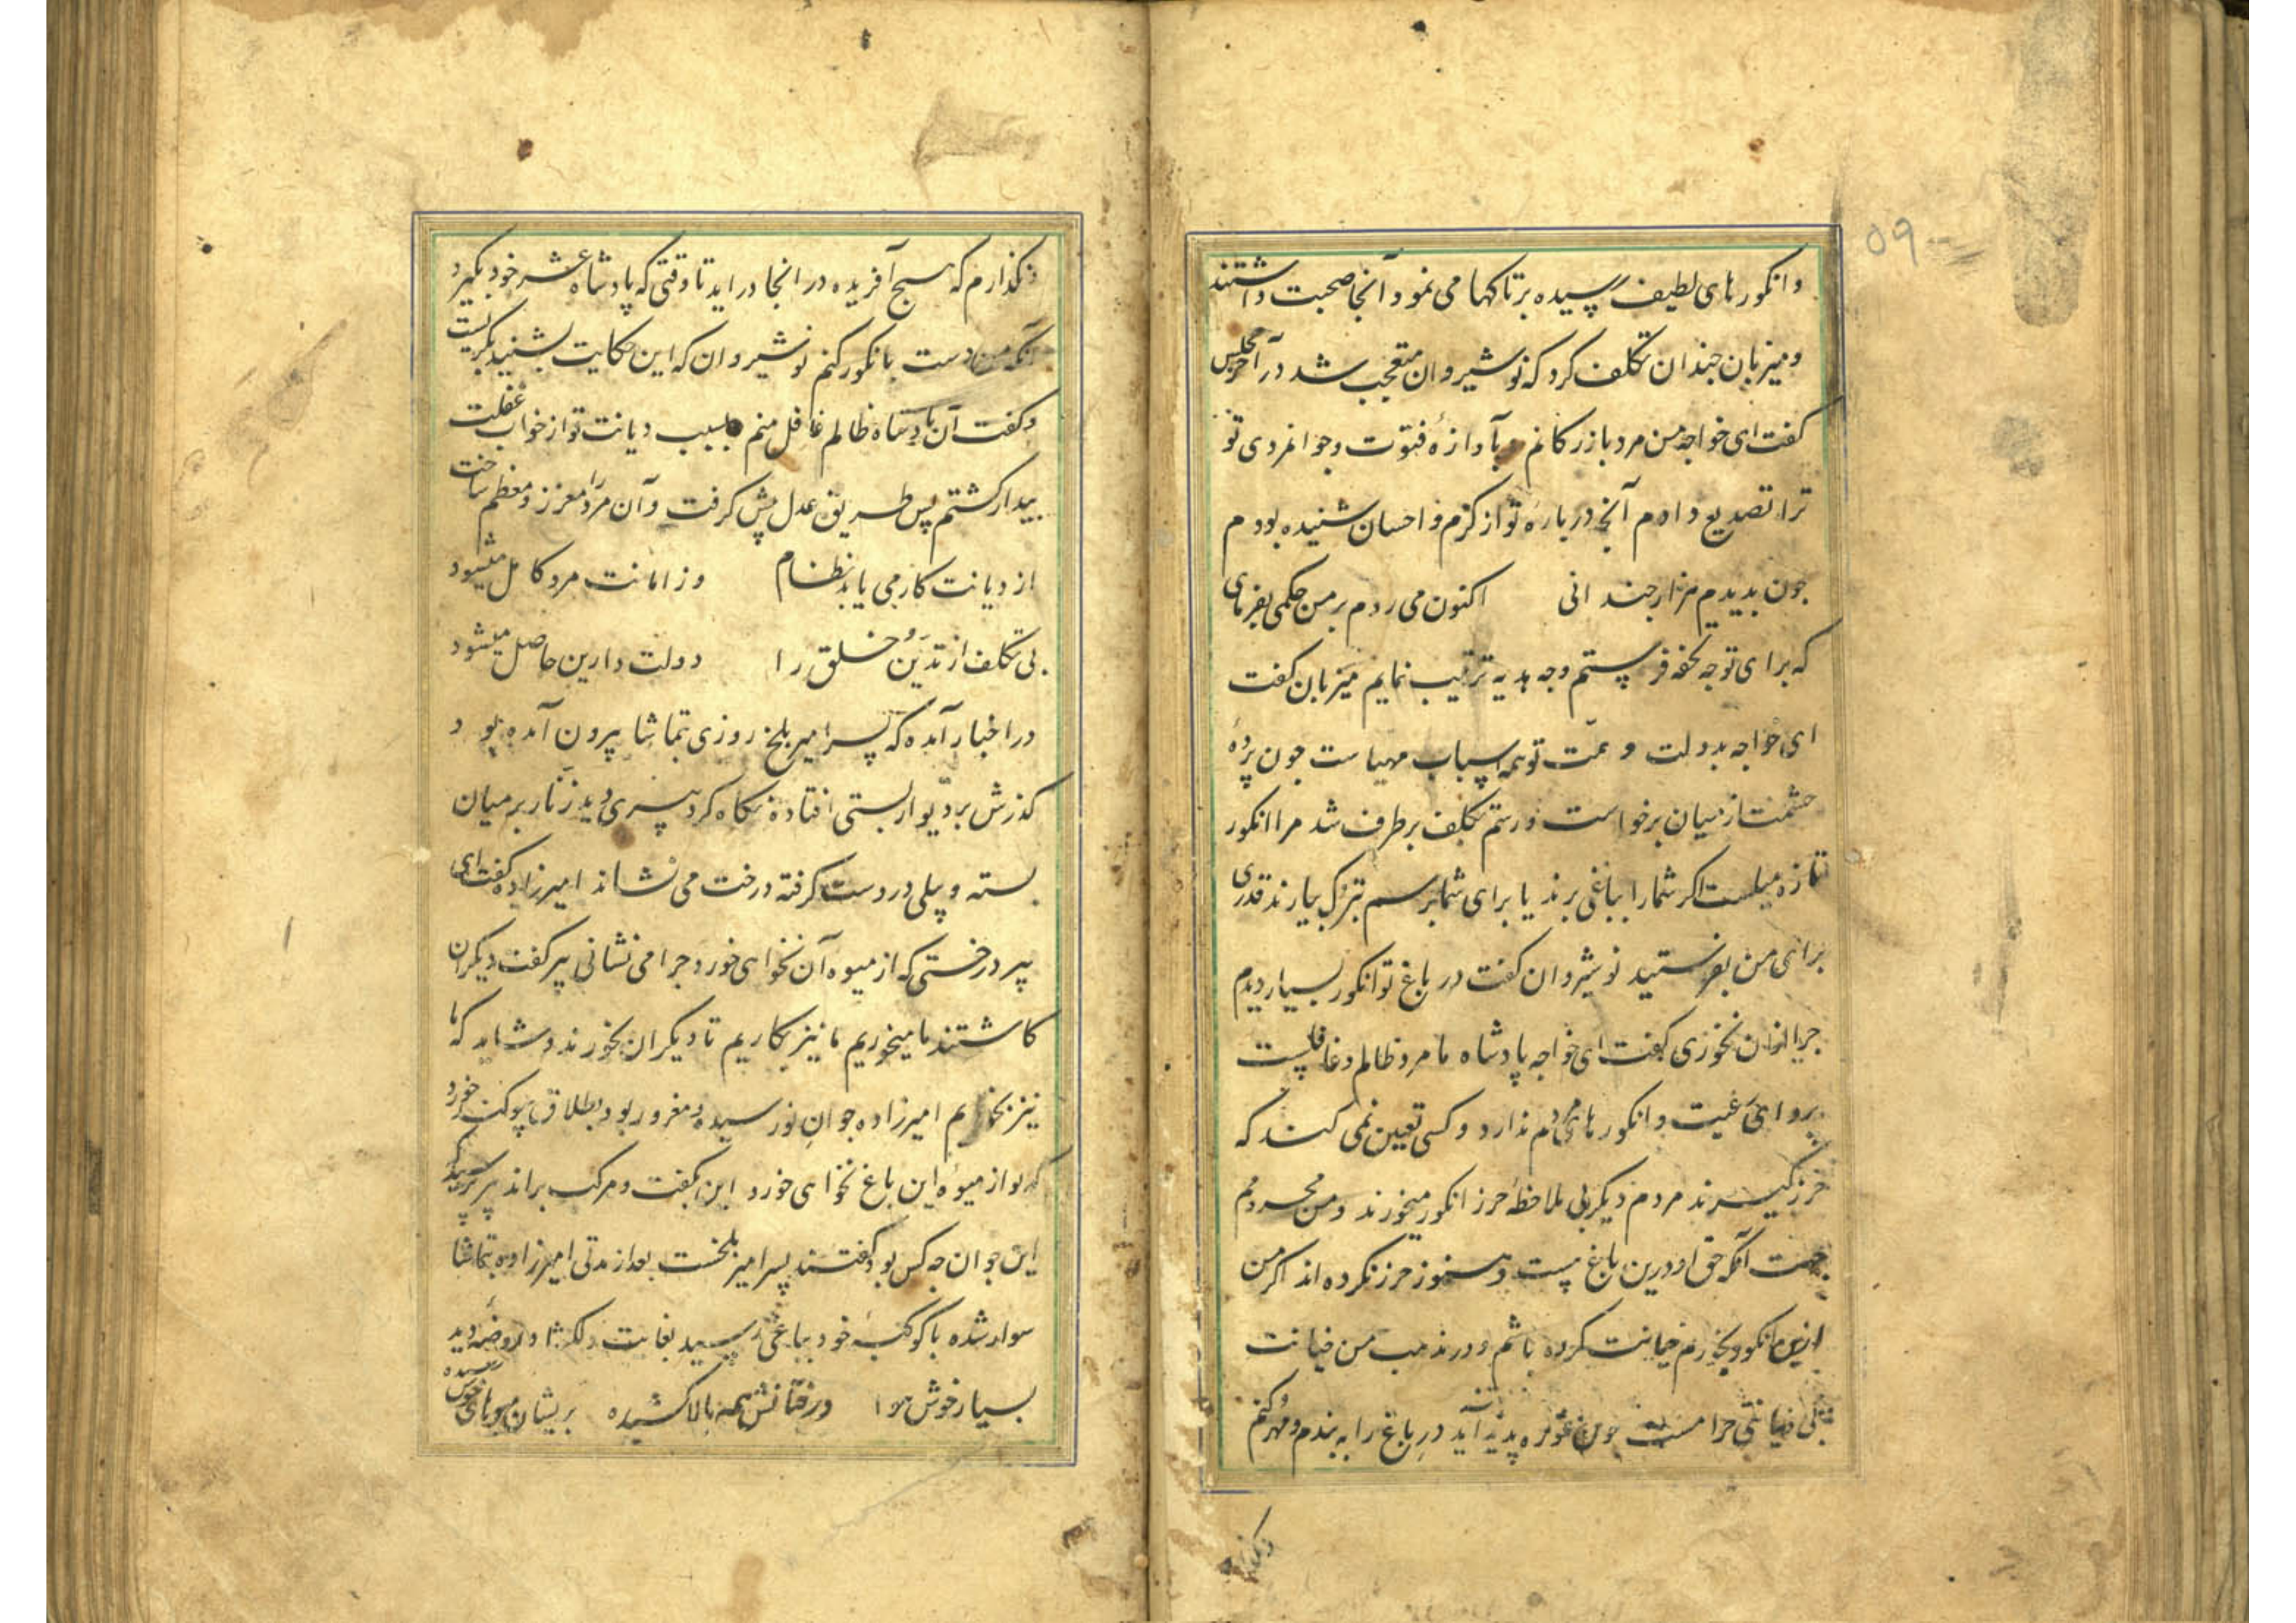 ۵۹
وانکورهای لطیف رسیده برتاکها می نمود آنجا صحبت داشتند
ومیزبان جندان تکلف کرد که نوشیروان متعجب شد در آخر مجلس
کفت ای خواجه من مرد بازرکانم و بآوازهٔ فتوّت وجوانمردی تو
ترا تصدیع دادم آنچه دربارهٔ تو از کرم و احسان شنیده بودم
جون بدیدم هزار جندانی اکنون می روم بر من حکمی بفرمای
که برای تو جه تحفه فرستم وجه هدیه ترتیب نمایم میزبان کفت
ای خواجه بدولت و تو همه اسباب مهیاست جون پردهٔ
حشمت از میان برخواست ورسم تکلف برطرف شد مرا انکور
تازه میلست اکر شما را بباغی برند یا برای شما برسم تبرک بیارند قدری
برای من بفرستید نوشیروان کفت در باغ تو انکور بسیار دیدم
جرا ازان نخوری کفت ای خواجه پادشاه ما مرد ظالم وغافلست
پروای رعیت وانکورهای مردم ندارد وکسی تعیین نمی کند که
حرز کیرند مردم دیکر بی ملاحظهٔ حرز انکور میخورند ومن محرومم
جهت آنکه حق او درین باغ هست وهنوز حرز نکرده اند اکر من
ازین انکور بخورم خیانت کرده باشم ودر مذهب من خیانت
خیانتی حرامست جون غوره پدید آید در باغ را به بندم ومهر کنم
ونکذارم
ونکذارم که هیچ آفریده در انجا دراید تا وقتی که پادشاه عشر خود بکیرد
آنکه من دست بانکور کنم نوشیروان که این حکایت بشنید بکریست
وکفت آن پادشاه ظالم غافل منم بسبب دیانت تو از خواب غفلت
بیدار کشتم پس طریق عدل پیش کرفت وآن مرد را معزز ومعظم ساخت
از دیانت کار می یابد نظام وز امانت مرد کامل میشود
بی تکلف از تدیّن خلق را دولت دارین حاصل میشود
در اخبار آمده که پسر امیر بلخ روزی بتماشا بیرون آمده بود
کذرش بر دیوار بستی افتاد نکاه کرد پیری دید زنار بر میان
بسته وبیلی در دست کرفته درخت می نشاند امیرزاده کفت ای
پیر درختی که از میوه آن نخواهی خورد جرا می نشانی پیر کفت دیکران
کاشتند ما میخوریم ما نیز بکاریم تا دیکران بخورند وشاید که ما
نیز بخوریم امیرزاده جوان نورسیده ومغرور بود بطلاق سوکند خورد
که تو از میوهٔ این باغ نخواهی خورد این بکفت ومرکب براند پیر پرسید که
این جوان جه کس بود کفتند پسر امیر بلخست بعد از مدتی امیرزاده بتماشا
سوار شده با کوکبهٔ خود بباغی رسید بغایت دلکشا وروضه دید
بسیار خوش هوا درختانش همه بالا کشیده بریشان میوهای خوش رسیده